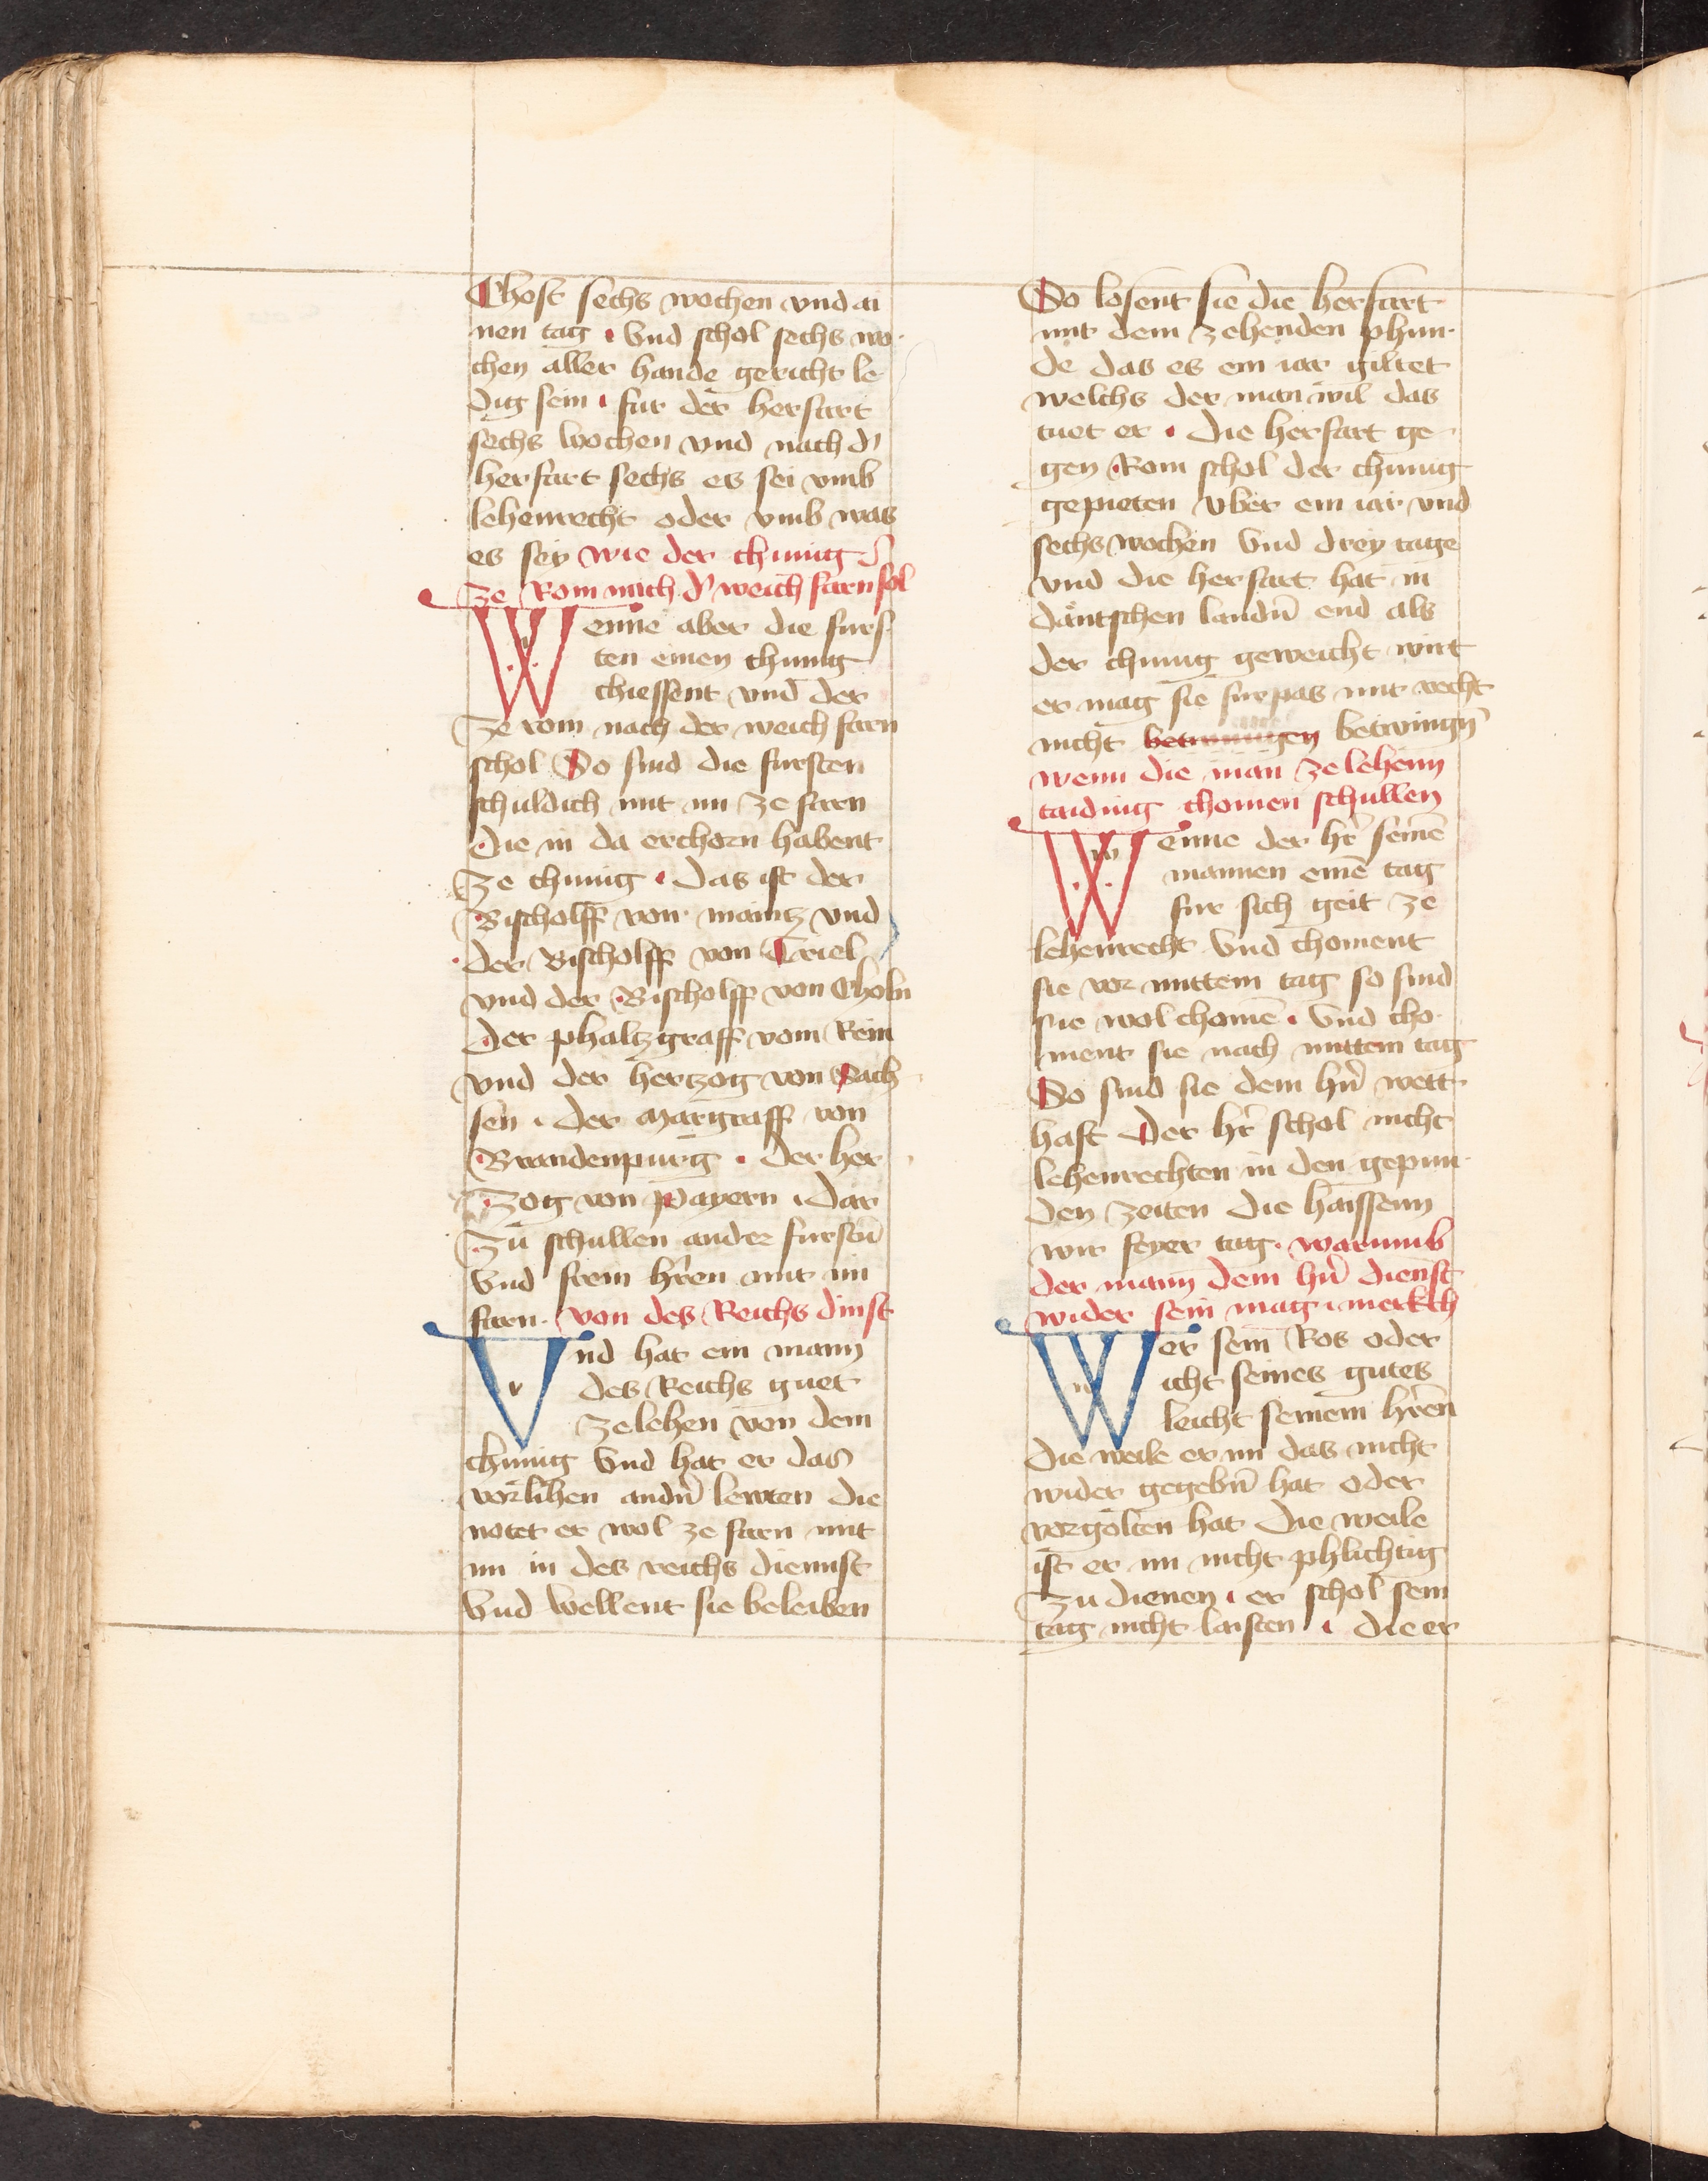 Chost sechs wochen vnd ai
nen tag Vnd schol sechs wo
chen aller hande gericht le
dig sein fur der herfart
sechs wochen vnd nach d'
herfart sechs es sei vmb
lehenrecht oder vmb was
es sey wie der chunig
ze Rom nach d' weich farn sol
Wenne aber die furs
ten einen chunig
chiessent vnd der
ze rom nach der weich farn
schol So sind die fursten
schuldich mit im ze farn
die in da erchorn habent
ze chunig das ist der
Bischolff von maintz vnd
der Bischolff von Triel
vnd der Bischolff von Choln
der phaltzgraff vom Rein
vnd der hertzog von Sach
sen der Margraff von
Brandenpurg der her
zog von payern dar
zu schullen ander furstn̄
Vnd frein hr̄en mit im
farn von des Reichs dinst
Vnd hat ein mann
des Reichs guet
ze lehen von dem
chunig Vnd hat er das
vorlihen andn̄ lewten die
notet er wol ze farn mit
im in des reichs diennst
Vnd wellent sie beleiben
So losent sie die herfart
mit dem zehenden phun
de das es ein iar giltet
welchs der man wil das
tuet er die herfart ge
gen Rom schol der chunig
gepieten vber ein iar vnd
sechs wochen Vnd drey tage
vnd die herfart hat in
däutschen landn̄ end als
der chunig geweicht wirt
er mag sie furpas mit recht
nicht betwingn̄
wenn die man ze lehenn
taiding chomen schullen
Wenne der hr̄ seinē
mannen einē tag
fur sich geit ze
lehenrecht Vnd choment
sie vor mittem tag so sind
sie wol chomē Vnd cho
ment sie nach mittem tag
So sind sie dem hn̄ wett
haft Der hr̄ schol nicht
lehenrechten in den gepun
den zeiten die haissenn
wir feyer tag warumb
der mann dem hn̄ dienst
wider sein mag merkch
Wer sein Ros oder
icht seines gutes
leicht seinem hr̄en
die weile er im das nicht
wider gegebn̄ hat oder
vorgolten hat die weile
ist er im nicht phlichtig
zu dienen er schol sein
tag nicht laisten die er